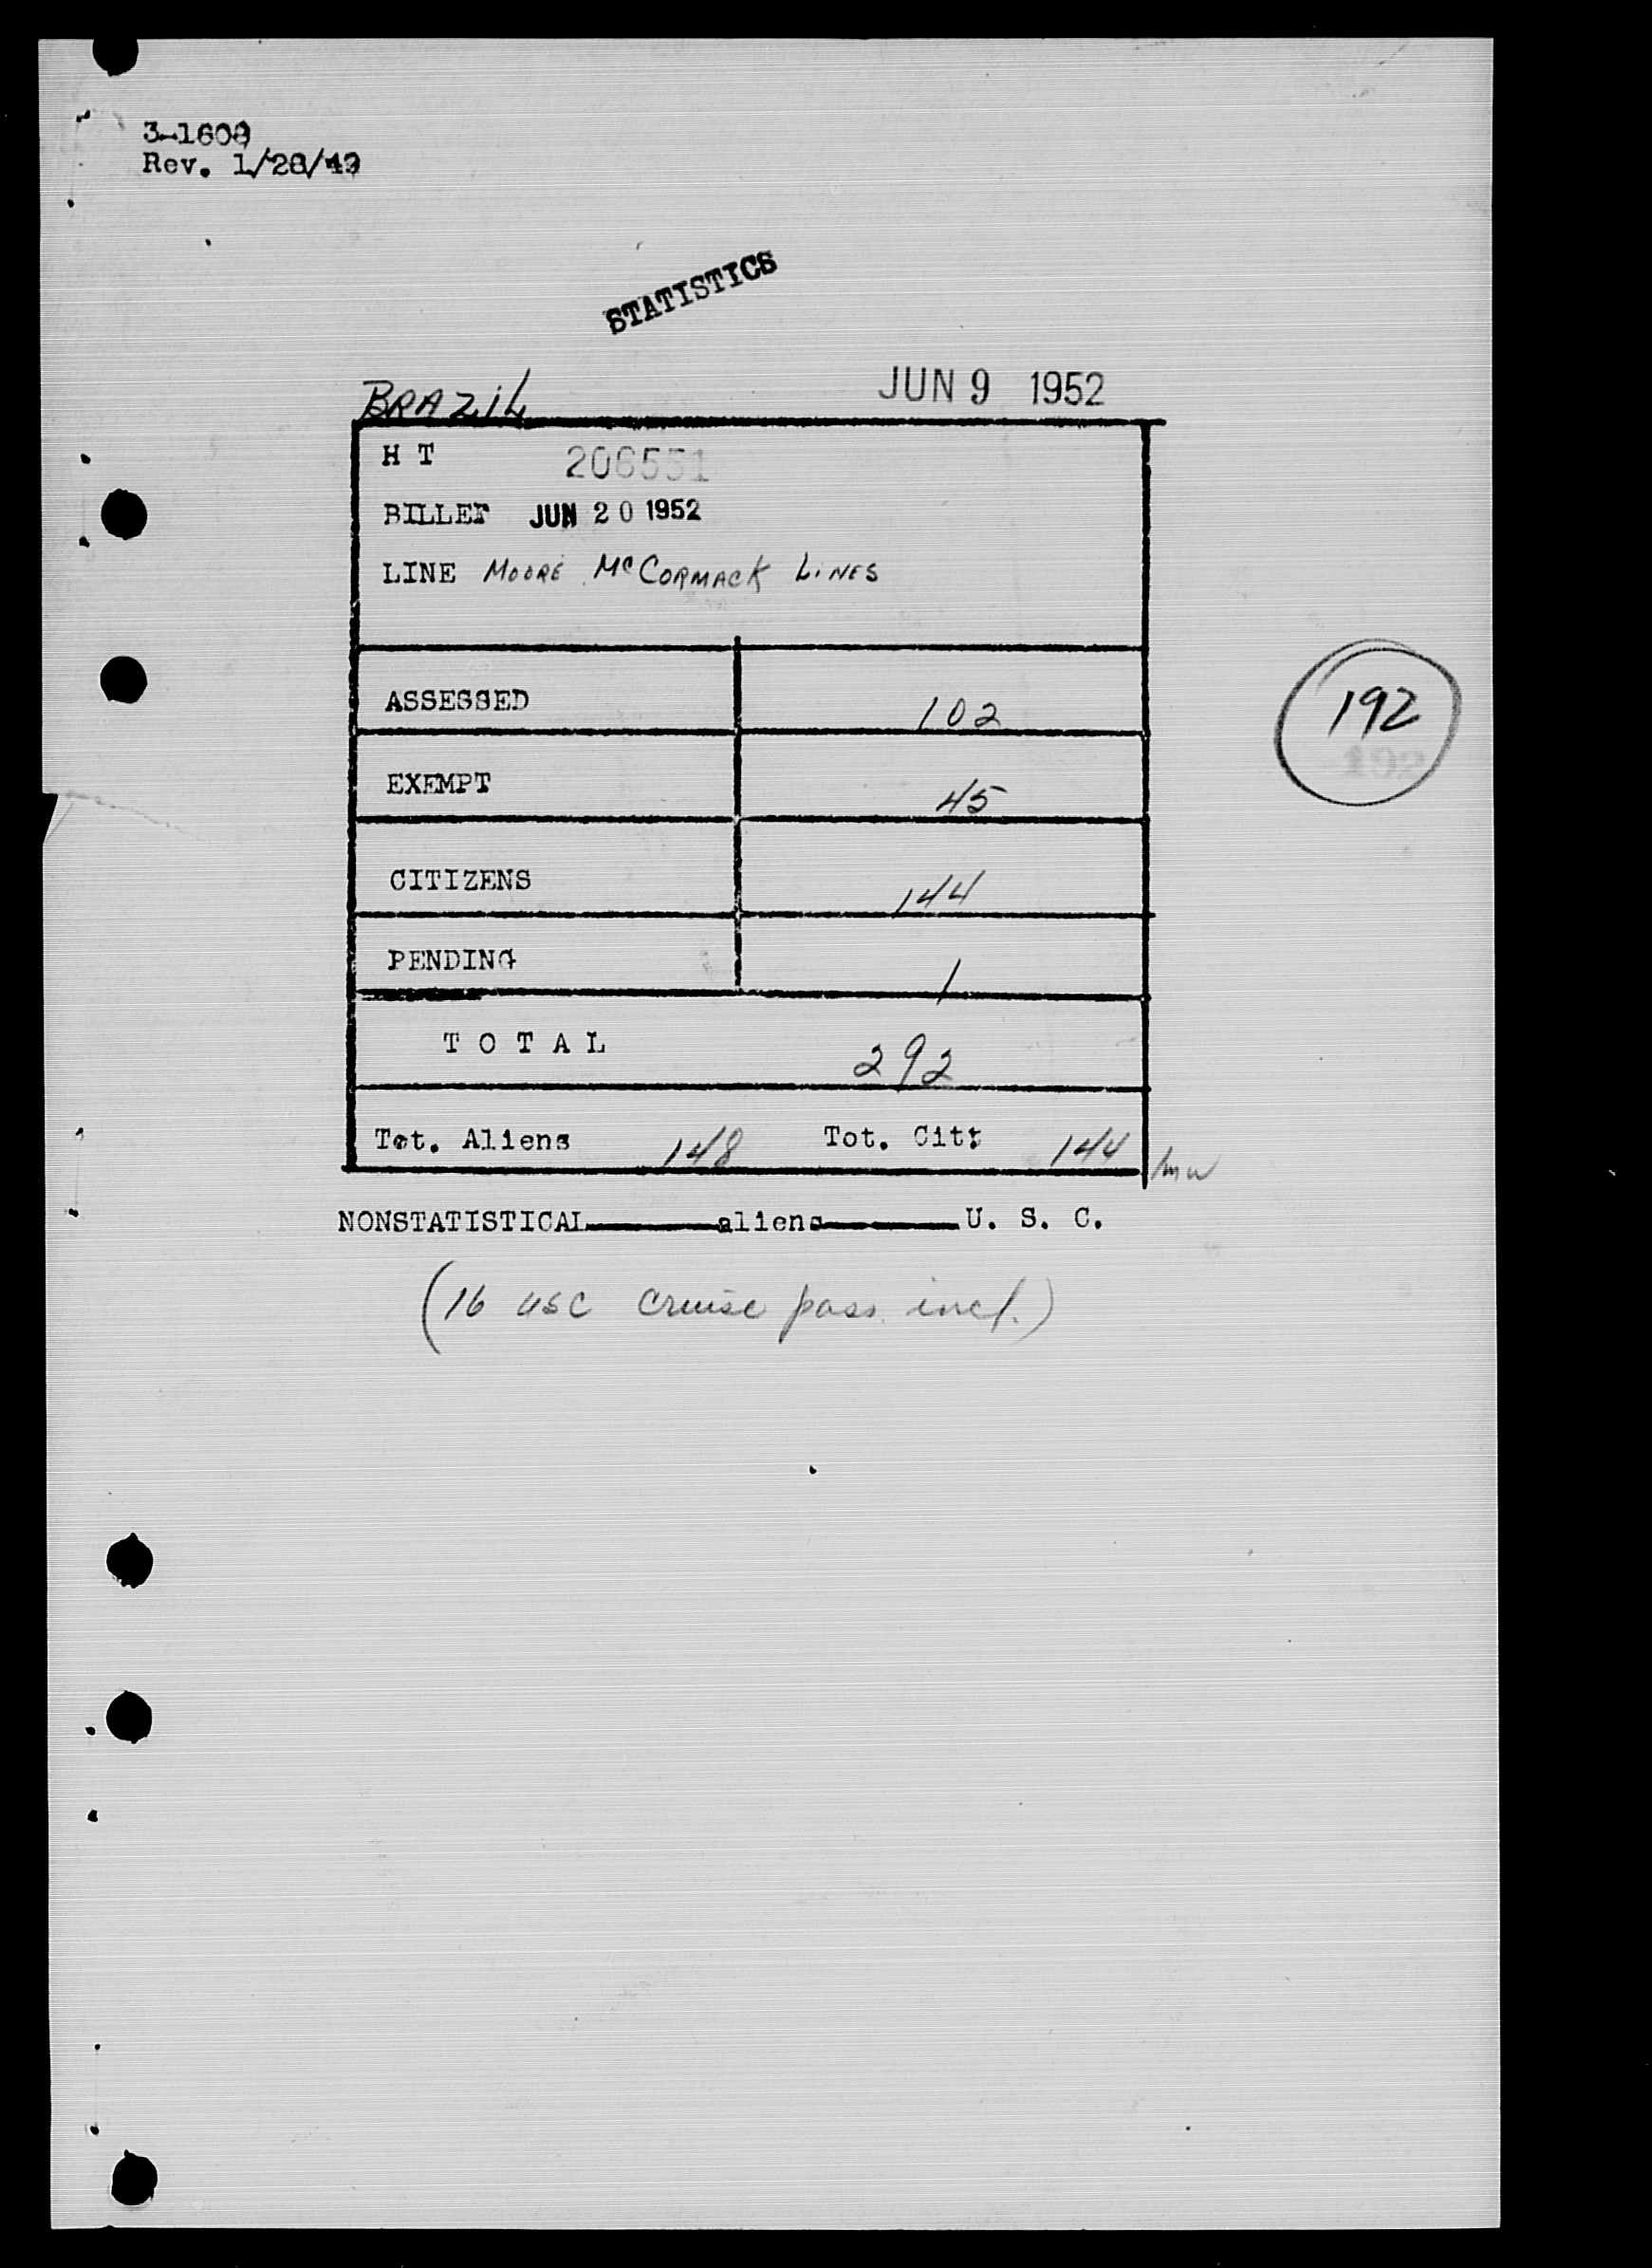 3-1608
Rev. 1/28/49
STATISTICS
BRAZIL JUN 9 1952
H T 206551
BILLET JUN 20 1952
LINE MOORE McCORMACK LINES
ASSESSED 102
192
EXEMPT 45
CITIZENS 144
PENDING 1
T O T A L 292
Tot. Aliens 148 Tot. Cit: 144 /mw
NONSTATISTICAL aliens U. S. C.
(16 USC cruise pass. incl.)